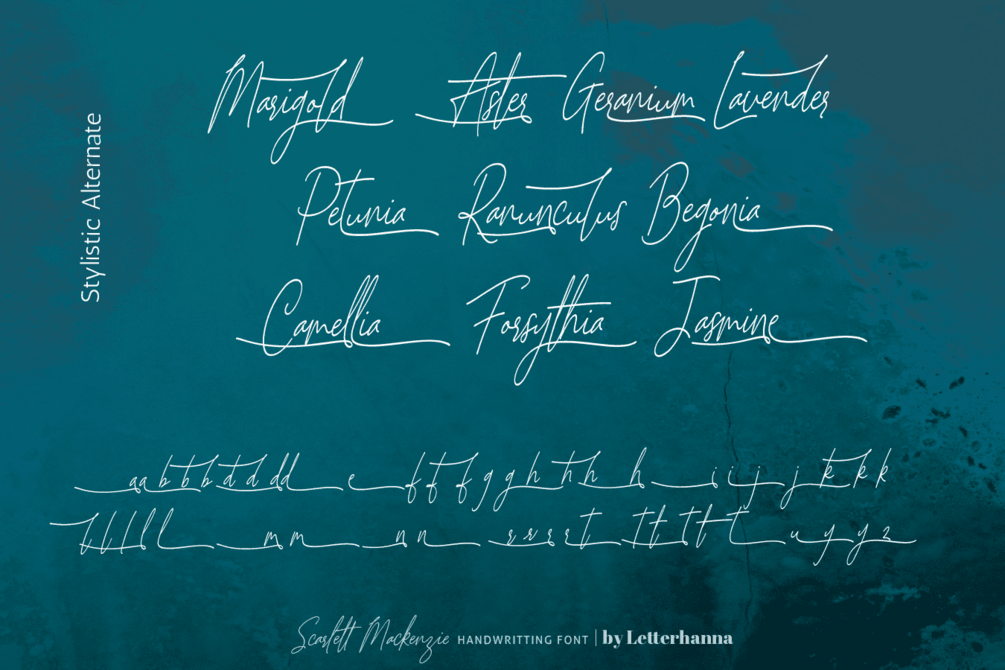 Stylistic Alternate
Marigold Aster Geranium Lavender
Petunia Ranunculus Begonia
Camellia Forsythia Jasmine
a a b b b b d d d d d e f f f g g h h h h i i j j k k k
l l l l l m m n n r r r r t t t t t t u y y z
Scarlett Mackenzie HANDWRITTING FONT | by Letterhanna